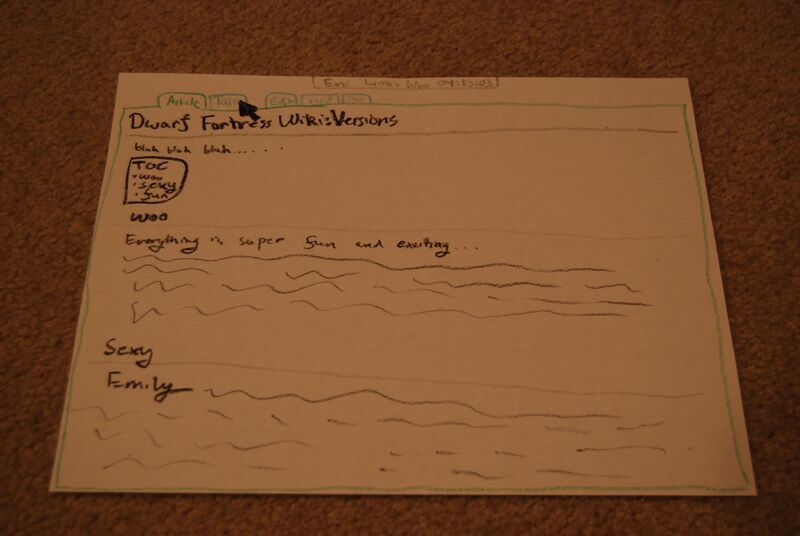 Links Woo 04:13:03
Article Talk Edit Hist
Dwarf Fortress Wiki:Versions
blah blah blah......
TOC
• woo
• sexy
• fun
Woo
Everything is super fun and exciting...
Sexy
Emily